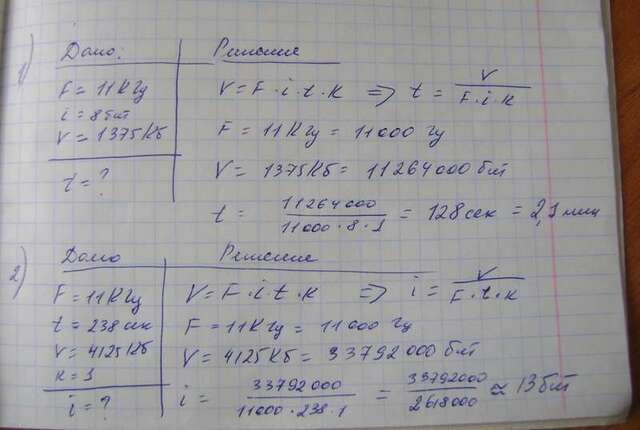 1) Дано:
F = 11 КГц
i = 8 бит
V = 1375 Кб
t = ?
Решение
V = F · i · t · к => t = V / F · i · к
F = 11 КГц = 11000 Гц
V = 1375 Кб = 11264000 бит
t = 11264000 / 11000 · 8 · 1 = 128 сек = 2,1 мин
2) Дано
F = 11 КГц
t = 238 сек
V = 4125 Кб
к = 1
i = ?
Решение
V = F · i · t · к => i = V / F · t · к
F = 11 КГц = 11000 Гц
V = 4125 Кб = 33792000 бит
i = 33792000 / 11000 · 238 · 1 = 33792000 / 2618000 ≈ 13 бит